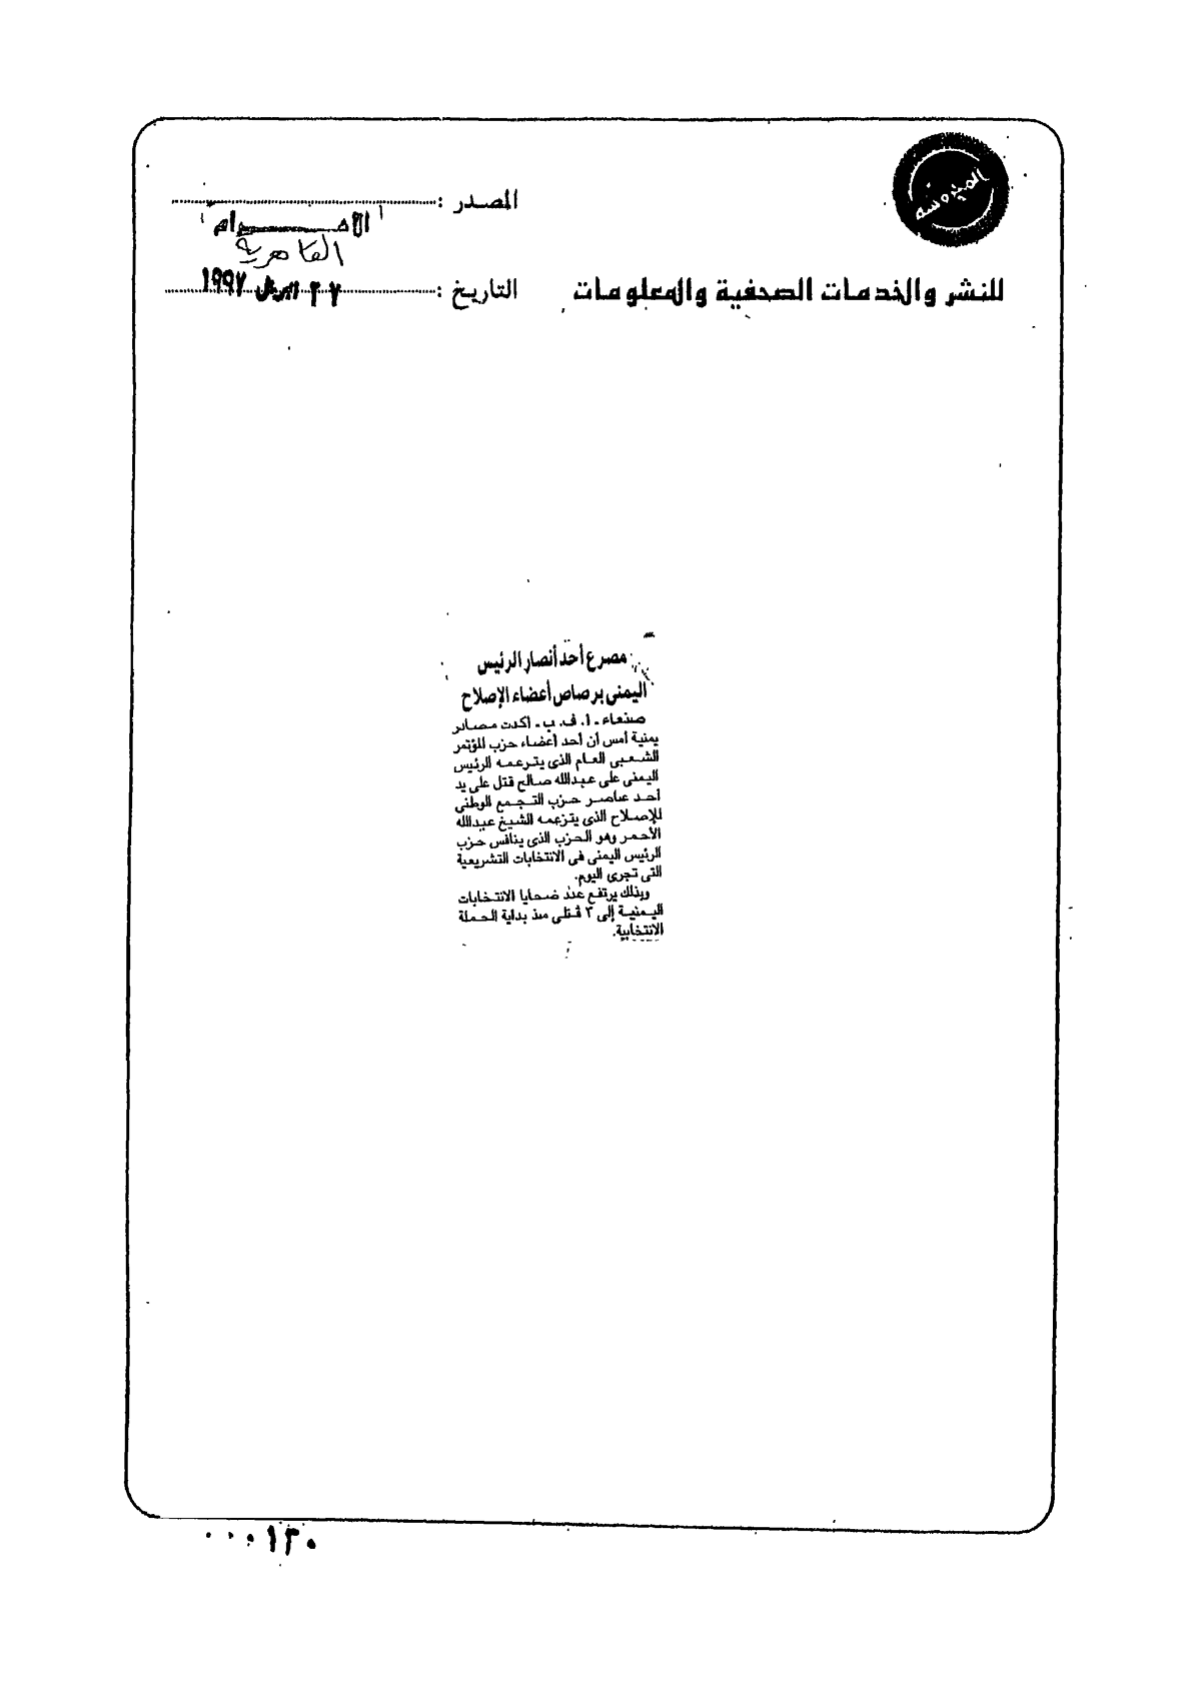 المحروسة
المصدر :
الأهـــــرام
القاهرية
للنشر والخدمات الصحفية والمعلومات
التاريخ : ٢٧ ابريل ١٩٩٧
مصرع أحد أنصار الرئيس
اليمنى برصاص أعضاء الإصلاح
صنعاء ـ ا. ف. ب ـ اكدت مصادر
يمنية أمس أن أحد أعضاء حزب المؤتمر
الشعبى العام الذى يتزعمه الرئيس
اليمنى على عبدالله صالح قتل على يد
أحد عناصر حزب التجمع الوطنى
للإصلاح الذى يتزعمه الشيخ عبدالله
الأحمر وهو الحزب الذى ينافس حزب
الرئيس اليمنى فى الانتخابات التشريعية
التى تجرى اليوم.
وبذلك يرتفع عدد ضحايا الانتخابات
اليمنية إلى ٣ قتلى منذ بداية الحملة
الانتخابية.
٠٠٠١٣٠